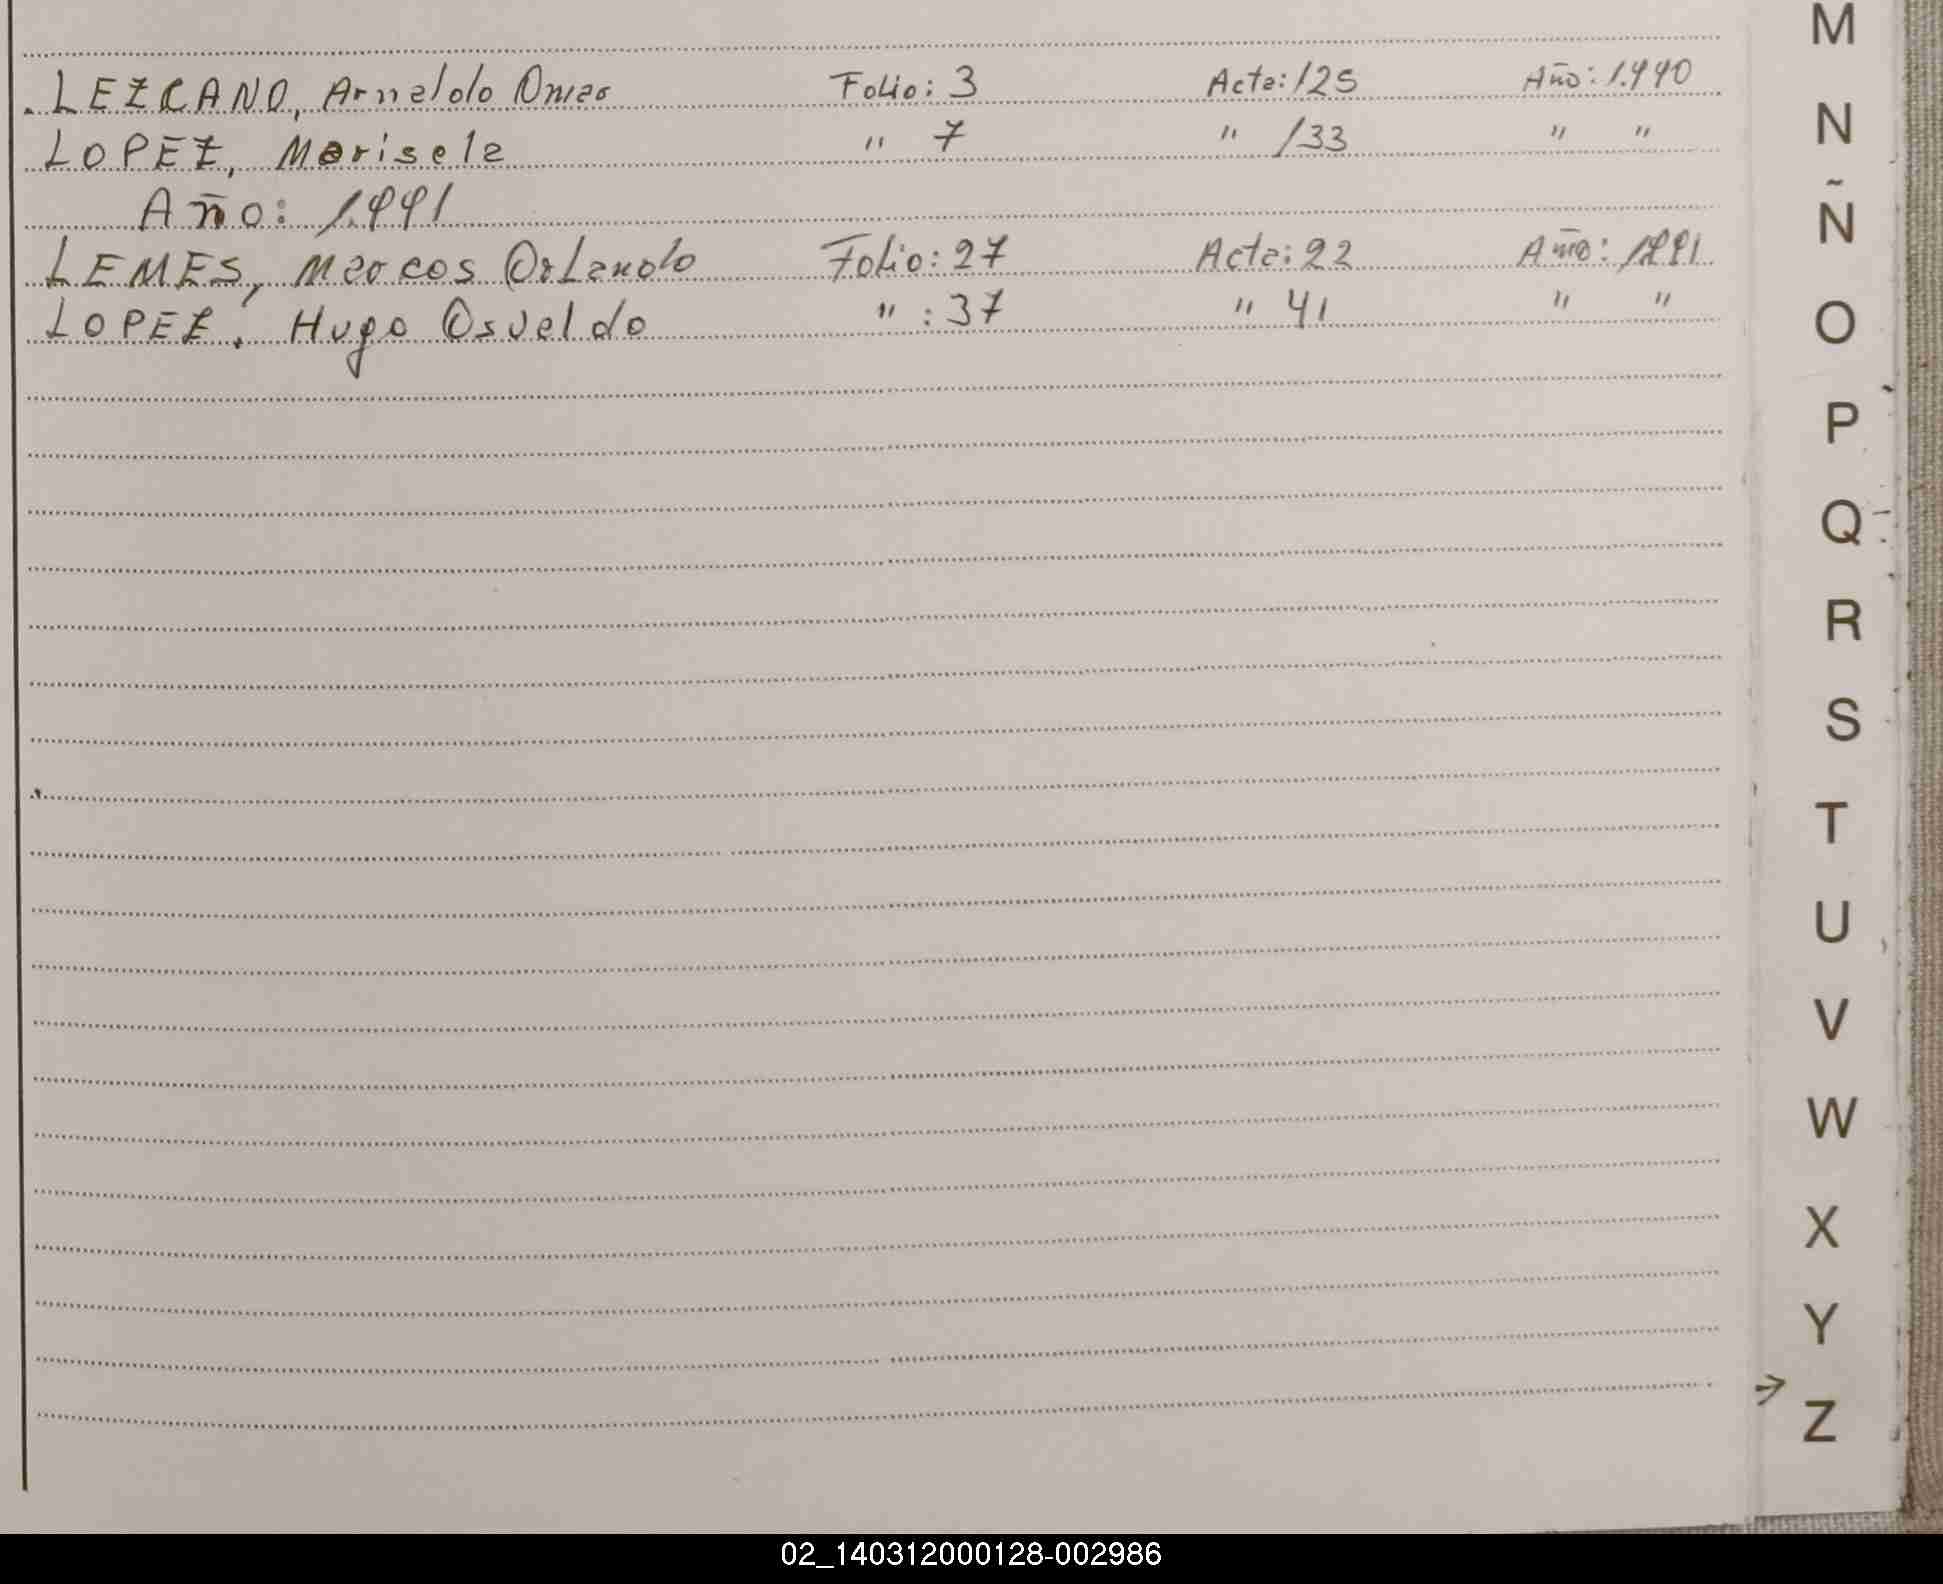 LEZCANO, Arnaldo Omar Folio: 3 Acta: 125 Año: 1.990
LOPEZ, Marisela " 7 " 133 " "
Año: 1.991
LEMES, Marcos Orlando Folio: 27 Acta: 22 Año: 1991
LOPEZ, Hugo Osvaldo " : 37 " 41 " "
M
N
Ñ
O
P
Q
R
S
T
U
V
W
X
Y
→ Z
02_140312000128-002986